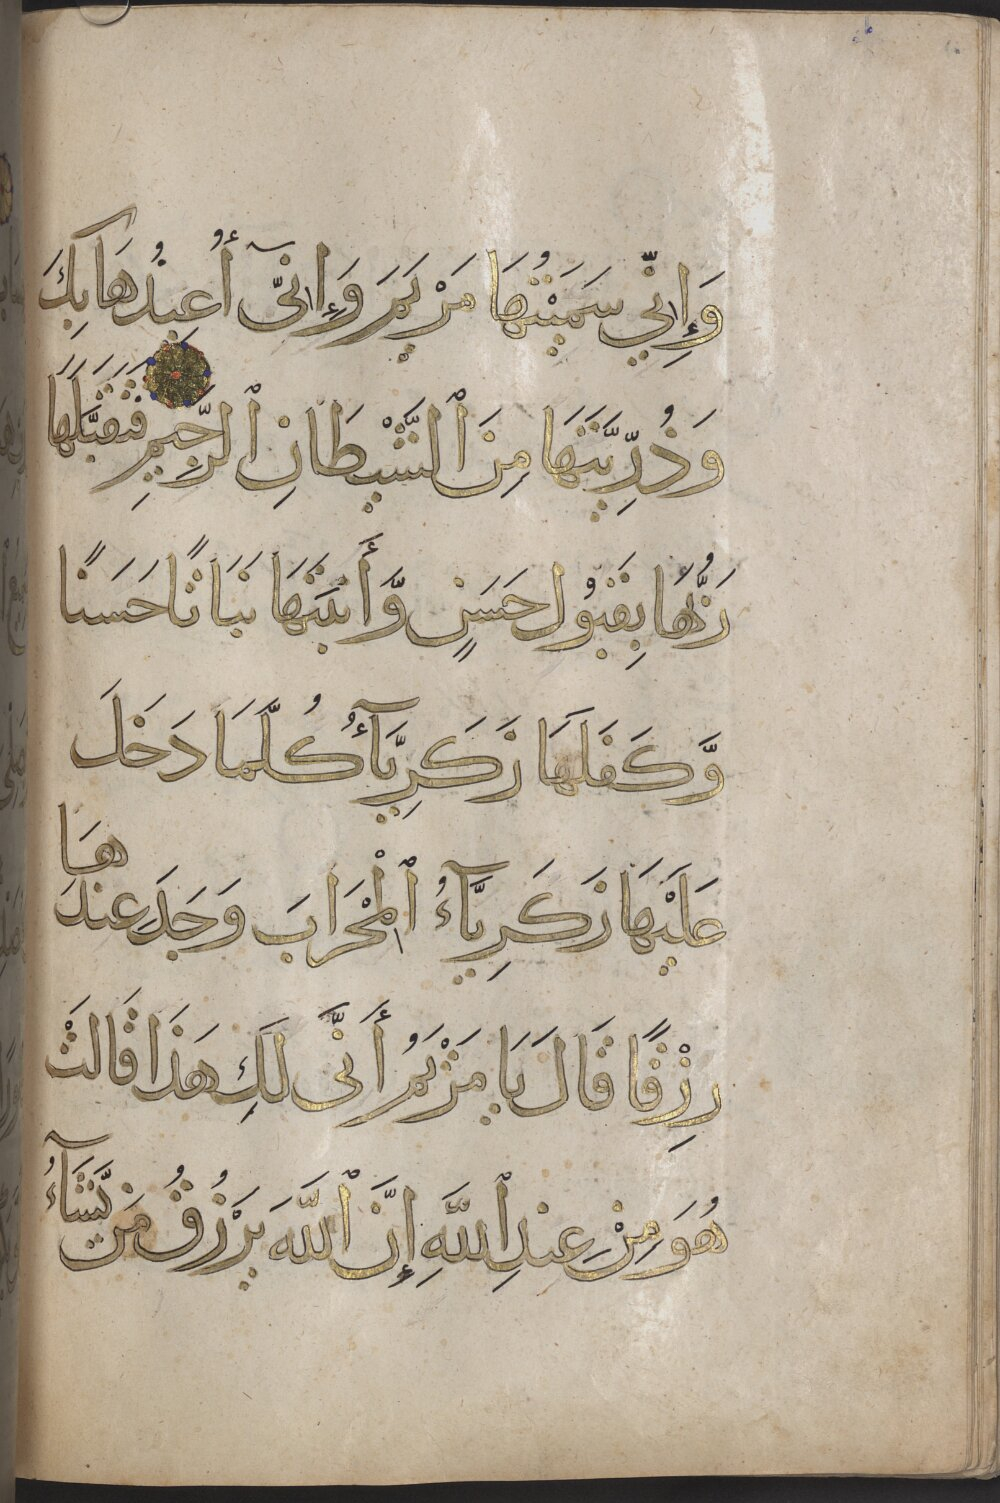 وَإِنِّي سَمَّيْتُهَا مَرْيَمَ وَإِنِّيٓ أُعِيذُهَا بِكَ
وَذُرِّيَّتَهَا مِنَ ٱلشَّيْطَانِ ٱلرَّجِيمِ فَتَقَبَّلَهَا
رَبُّهَا بِقَبُولٍ حَسَنٍ وَّأَنْبَتَهَا نَبَاتًا حَسَنًا
وَّكَفَلَهَا زَكَرِيَّآءُ كُلَّمَا دَخَلَ
عَلَيْهَا زَكَرِيَّآءُ ٱلْمِحْرَابَ وَجَدَ عِنْدَهَا
رِزْقًا قَالَ يَا مَرْيَمُ أَنَّى لَكِ هَذَا قَالَتْ
هُوَ مِنْ عِنْدِ ٱللَّهِ إِنَّ ٱللَّهَ يَرْزُقُ مَنْ يَّشَآءُ